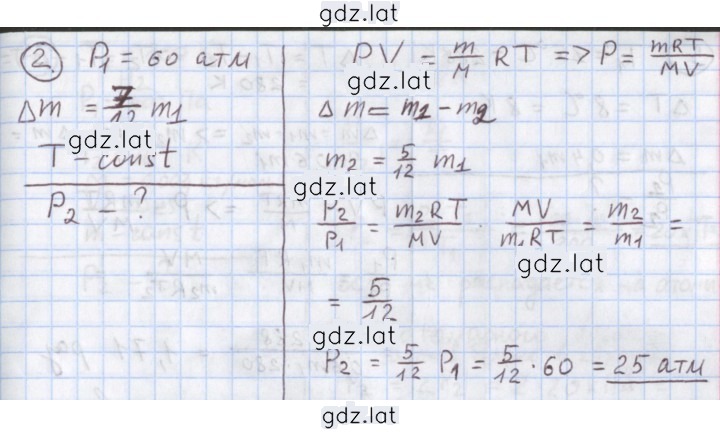 gdz.lat
2. P₁ = 60 атм
Δm = 7/12 m₁
gdz.lat
T - const
P₂ - ?
PV = m/M RT => P = mRT/MV
gdz.lat
Δm = m₁ - m₂
m₂ = 5/12 m₁
gdz.lat
P₂/P₁ = m₂RT/MV · MV/m₁RT = m₂/m₁ =
gdz.lat
= 5/12
gdz.lat
P₂ = 5/12 P₁ = 5/12 · 60 = 25 атм
gdz.lat